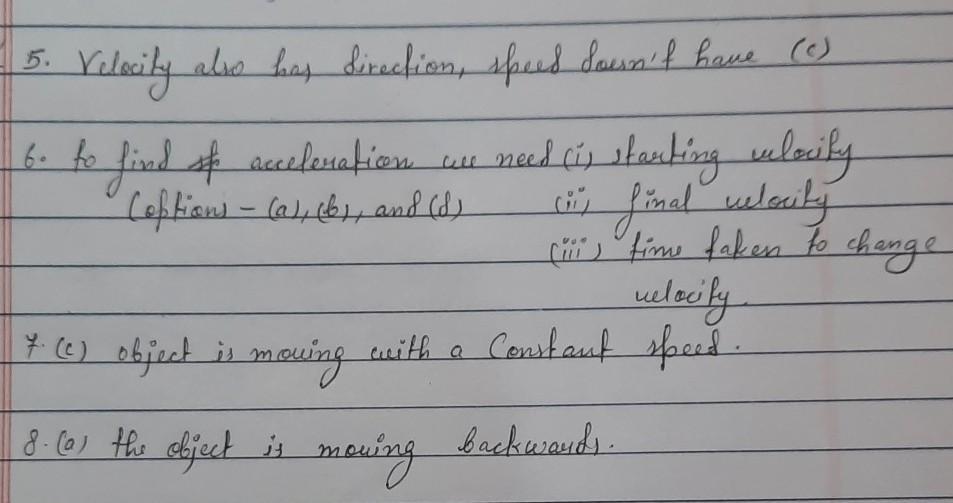 5. Velocity also has direction, speed doesn't have (c)
6. to find acceleration we need (i) starting velocity
(options - (a), (b), and (d) (ii) final velocity
(iii) time taken to change
velocity.
7. (c) object is moving with a Constant speed.
8. (a) the object is moving backwards.